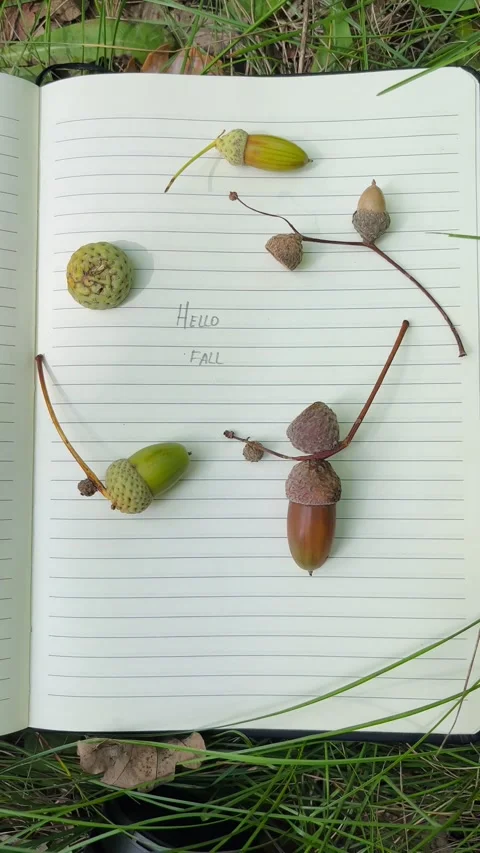 HELLO
FALL